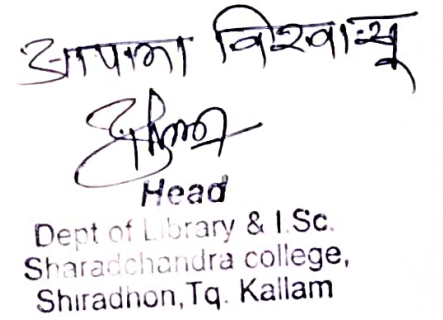 आपला विश्वासू
Head
Dept of Library & I.Sc.
Sharadchandra college,
Shiradhon,Tq. Kallam